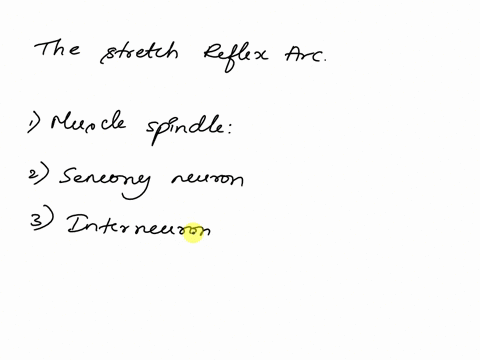 The stretch Reflex Arc.
1) Muscle spindle:
2) Sensory neuron
3) Interneuron